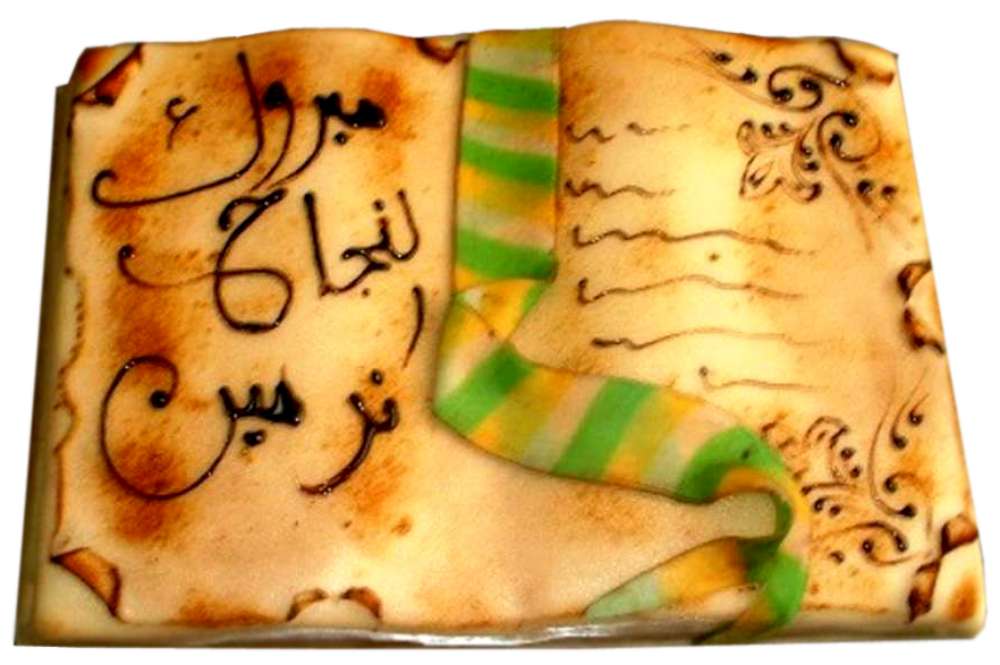 مبروك
لنجاح
نرمين